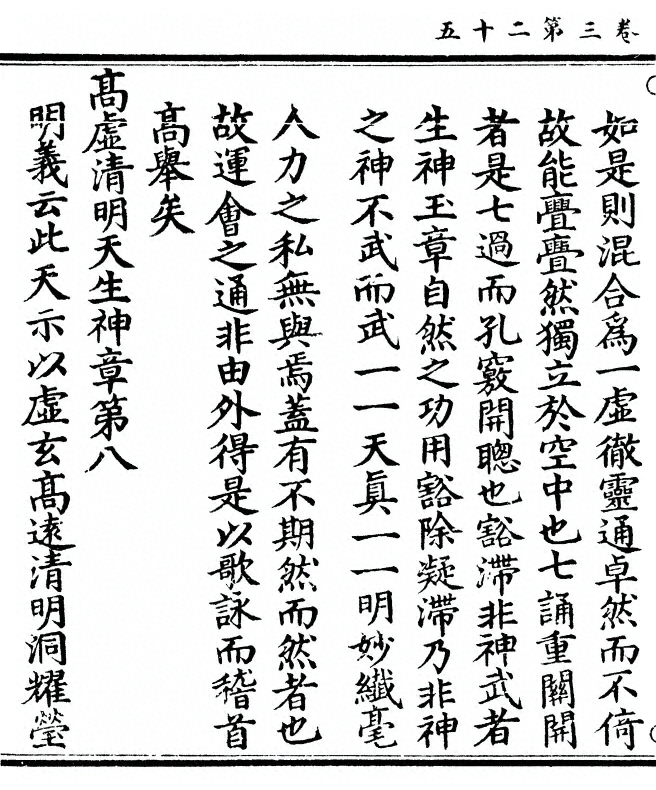 卷三第二十五
如是則混合爲一虛徹靈通卓然而不倚
故能亹亹然獨立於空中也七誦重關開
者是七過而孔竅開聰也豁滯非神武者
生神玉章自然之功用豁除凝滯乃非神
之神不武而武一一天眞一一明妙纖毫
人力之私無與焉蓋有不期然而然者也
故運會之通非由外得是以歌詠而稽首
高舉矣
高虛清明天生神章第八
明義云此天示以虛玄高遠清明洞耀瑩